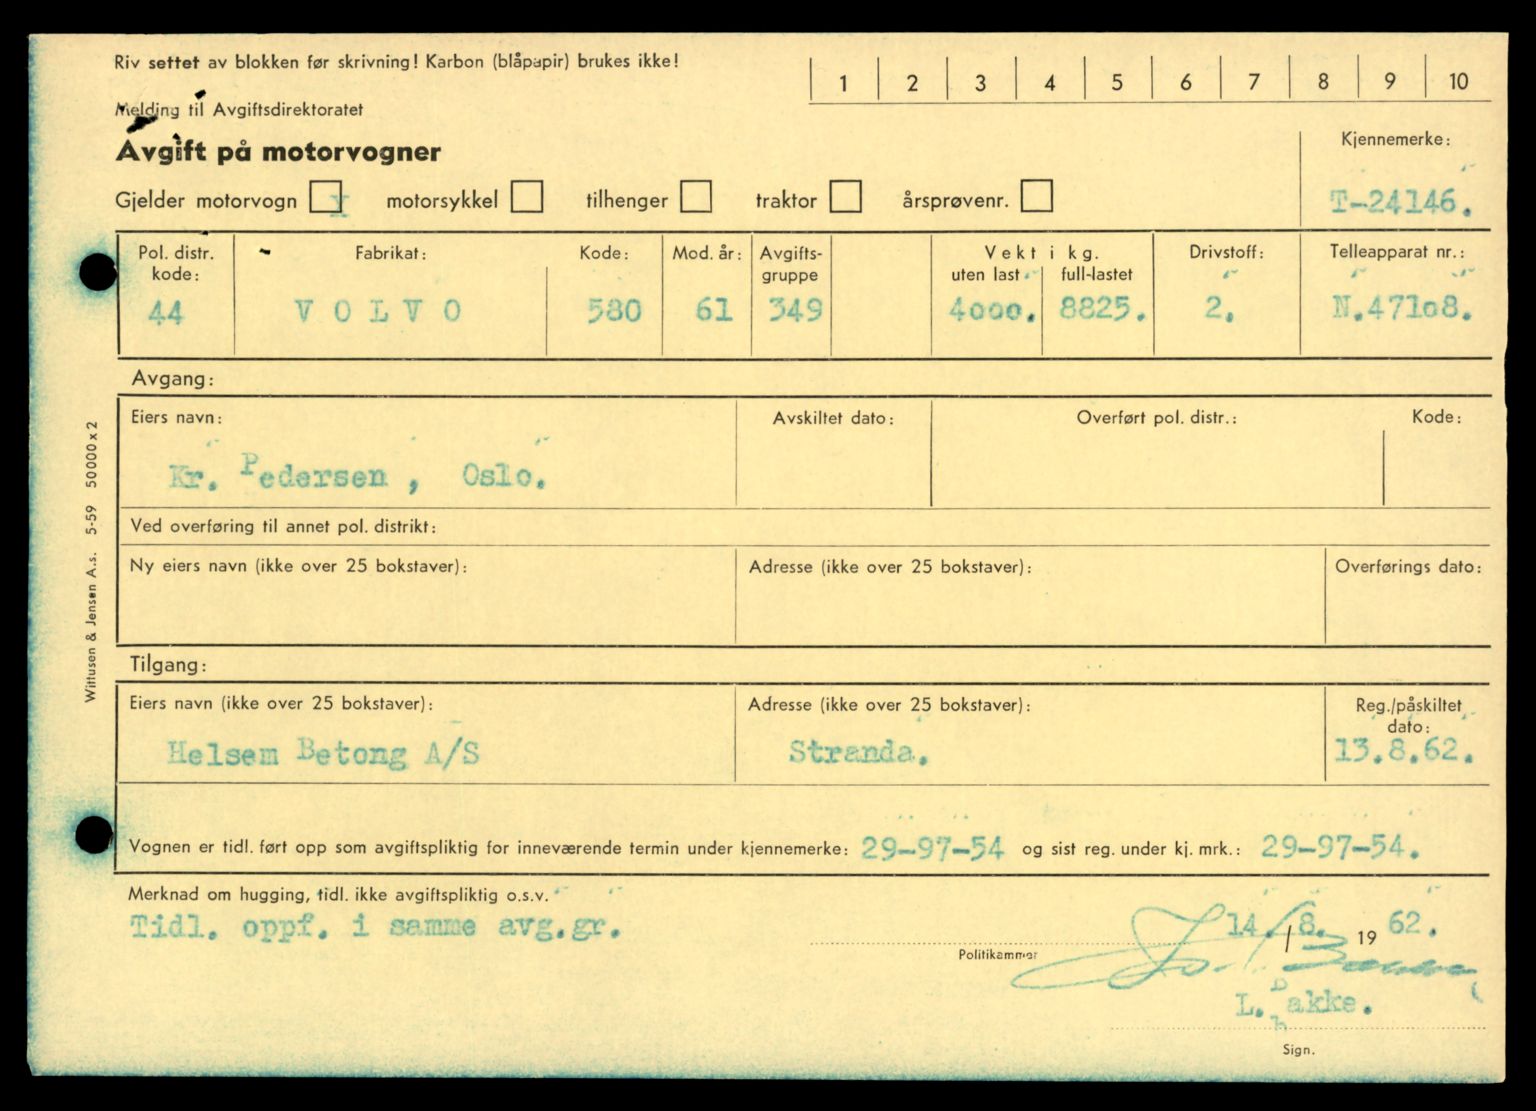 Riv settet av blokken før skrivning! Karbon (blåpapir) brukes ikke!
1 2 3 4 5 6 7 8 9 10
Melding til Avgiftsdirektoratet
Avgift på motorvogner
Kjennemerke:
Gjelder motorvogn X motorsykkel tilhenger traktor årsprøvenr.
T-24146.
Pol. distr. kode: Fabrikat: Kode: Mod. år: Avgifts-gruppe Vekt i kg. uten last full-lastet Drivstoff: Telleapparat nr.:
44 VOLVO 580 61 349 4000. 8825. 2. N.47108.
Avgang:
Eiers navn: Avskiltet dato: Overført pol. distr.: Kode:
Kr. Pedersen, Oslo.
Ved overføring til annet pol. distrikt:
Ny eiers navn (ikke over 25 bokstaver): Adresse (ikke over 25 bokstaver): Overførings dato:
Tilgang:
Eiers navn (ikke over 25 bokstaver): Adresse (ikke over 25 bokstaver): Reg./påskiltet dato:
Helsem Betong A/S Stranda. 13.8.62.
Vognen er tidl. ført opp som avgiftspliktig for inneværende termin under kjennemerke: 29-97-54 og sist reg. under kj. mrk.: 29-97-54.
Merknad om hugging, tidl. ikke avgiftspliktig o.s.v.
Tidl. oppf. i samme avg.gr.
14./8. 19 62.
Politikammer
L. Bakke.
Sign.
Wittusen & Jensen A.s. 5-59 50000x2